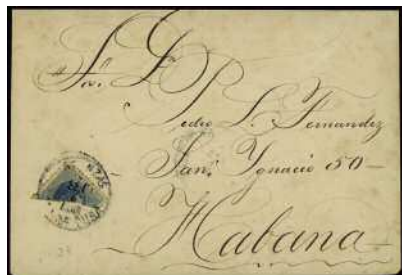 Sor. Dn
Pedro L. Fernandez
San Ygnacio 50
Habana